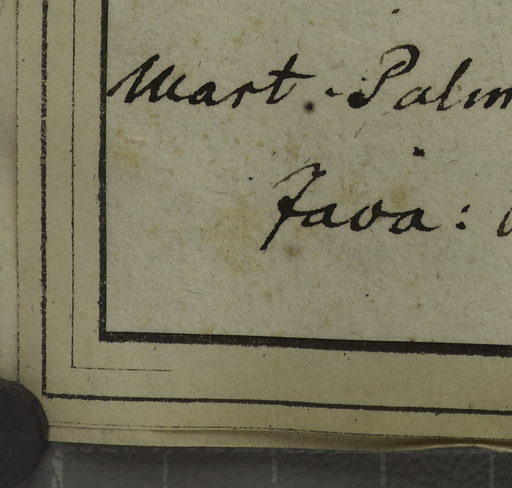 Mart. Palm
Java: